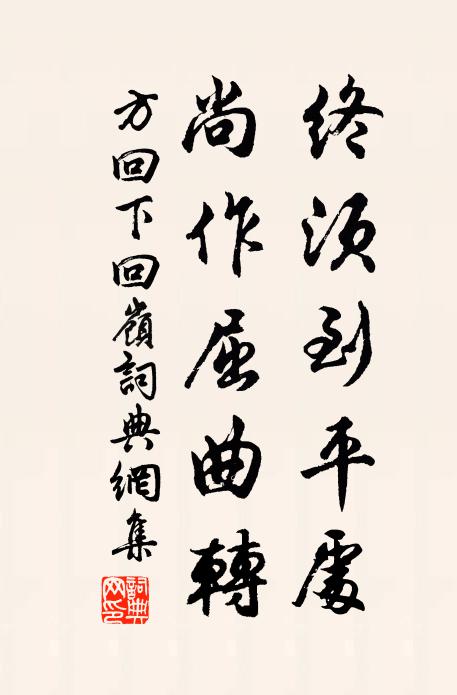 終須到平處
尚作屈曲轉
方回下回嶺詞典網集
詞典網印